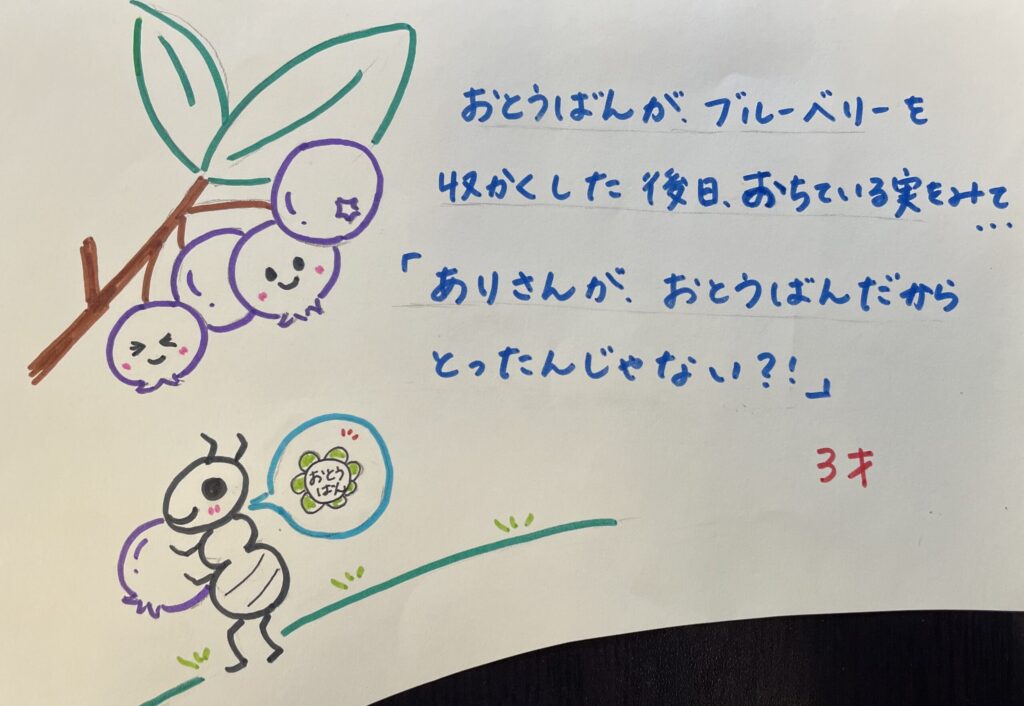 おとうばんが、ブルーベリーを
収かくした後日、おちている実をみて
…
「ありさんが、おとうばんだから
とったんじゃない?!」
3才
おとう
ばん